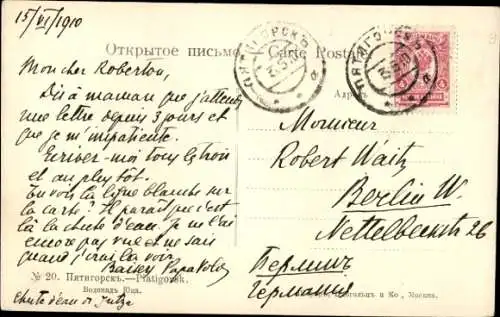 15/VI/1910
Открытое письмо. Carte Postale
ПЯТИГОРСКЪ
ПЯТИГОРСКЪ
Mon cher Roberton,
Dis à maman que j'attends
une lettre depuis 3 jours et
que je m'impatiente.
Ecrivez-moi tous les trois
et au plus tôt.
Tu vois la ligne blanche sur
la carte? Il paraît que c'est
là la chute d'eau, je ne l'ai
encore pas vue et ne sais
quand j'irai la voir.
Baisers Papa
№ 20. Пятигорскъ.—Piatigorsk.
Водопадъ Юца.
Chute d'eau de Jutza
Monsieur
Robert Waitz
Berlin W.
Nettelbeckstr 26
Берлинъ
Германия
и Ко, Москва.